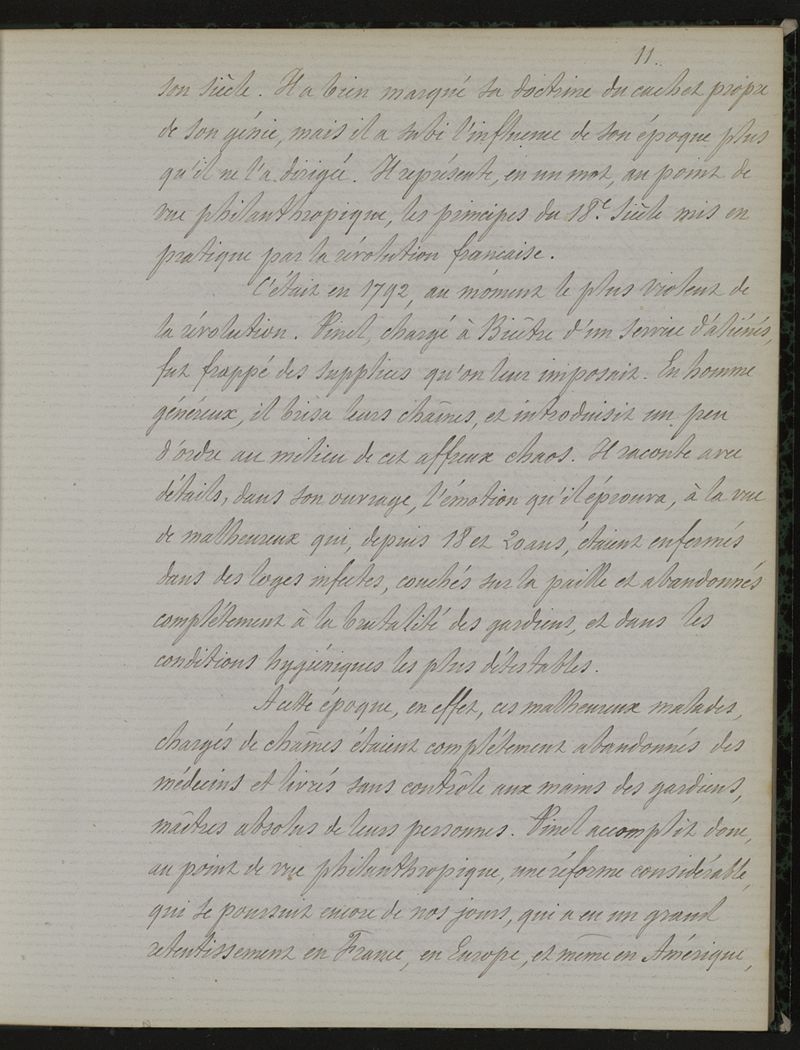 11.
son siècle. Il a bien marqué sa doctrine du cachet propre
de son génie, mais il a subi l'influence de son époque plus
qu'il ne l'a dirigée. Il représente, en un mot, au point de
vue philanthropique, les principes du 18e siècle mis en
pratique par la révolution francaise.
C'était en 1792, au moment le plus violent de
la révolution. Pinel, chargé à Bicêtre d'un service d'aliénés,
fut frappé des supplices qu'on leur imposait. En homme
généreux, il brisa leurs chaînes, et introduisit un peu
d'ordre au milieu de cet affreux chaos. Il raconte avec
détails, dans son ouvrage, l'émotion qu'il éprouva, à la vue
de malheureux qui, depuis 18 et 20 ans, étaient enfermés
dans des loges infectes, couchés sur la paille et abandonnés
complétement à la brutalité des gardiens, et dans les
conditions hygiéniques les plus détestables.
A cette époque, en effet, ces malheureux malades,
chargés de chaînes étaient complétement abandonnés des
médecins et livrés sans contrôle aux mains des gardiens,
maîtres absolus de leurs personnes. Pinel accomplit donc,
au point de vue philanthropique, une réforme considérable,
qui se poursuit encore de nos jours, qui a eu un grand
retentissement en France, en Europe, et même en Amérique,